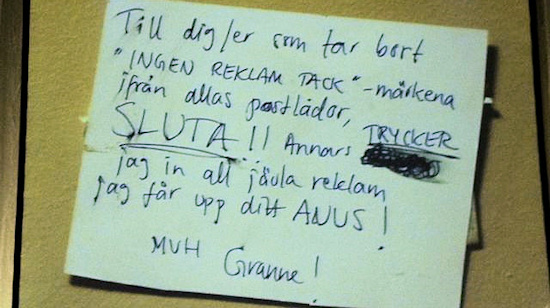 Till dig/er som tar bort
"INGEN REKLAM TACK"-märkena
ifrån allas postlådor,
SLUTA!! Annars TRYCKER
jag in all jävla reklam
jag får upp ditt ANUS!
MVH Granne!